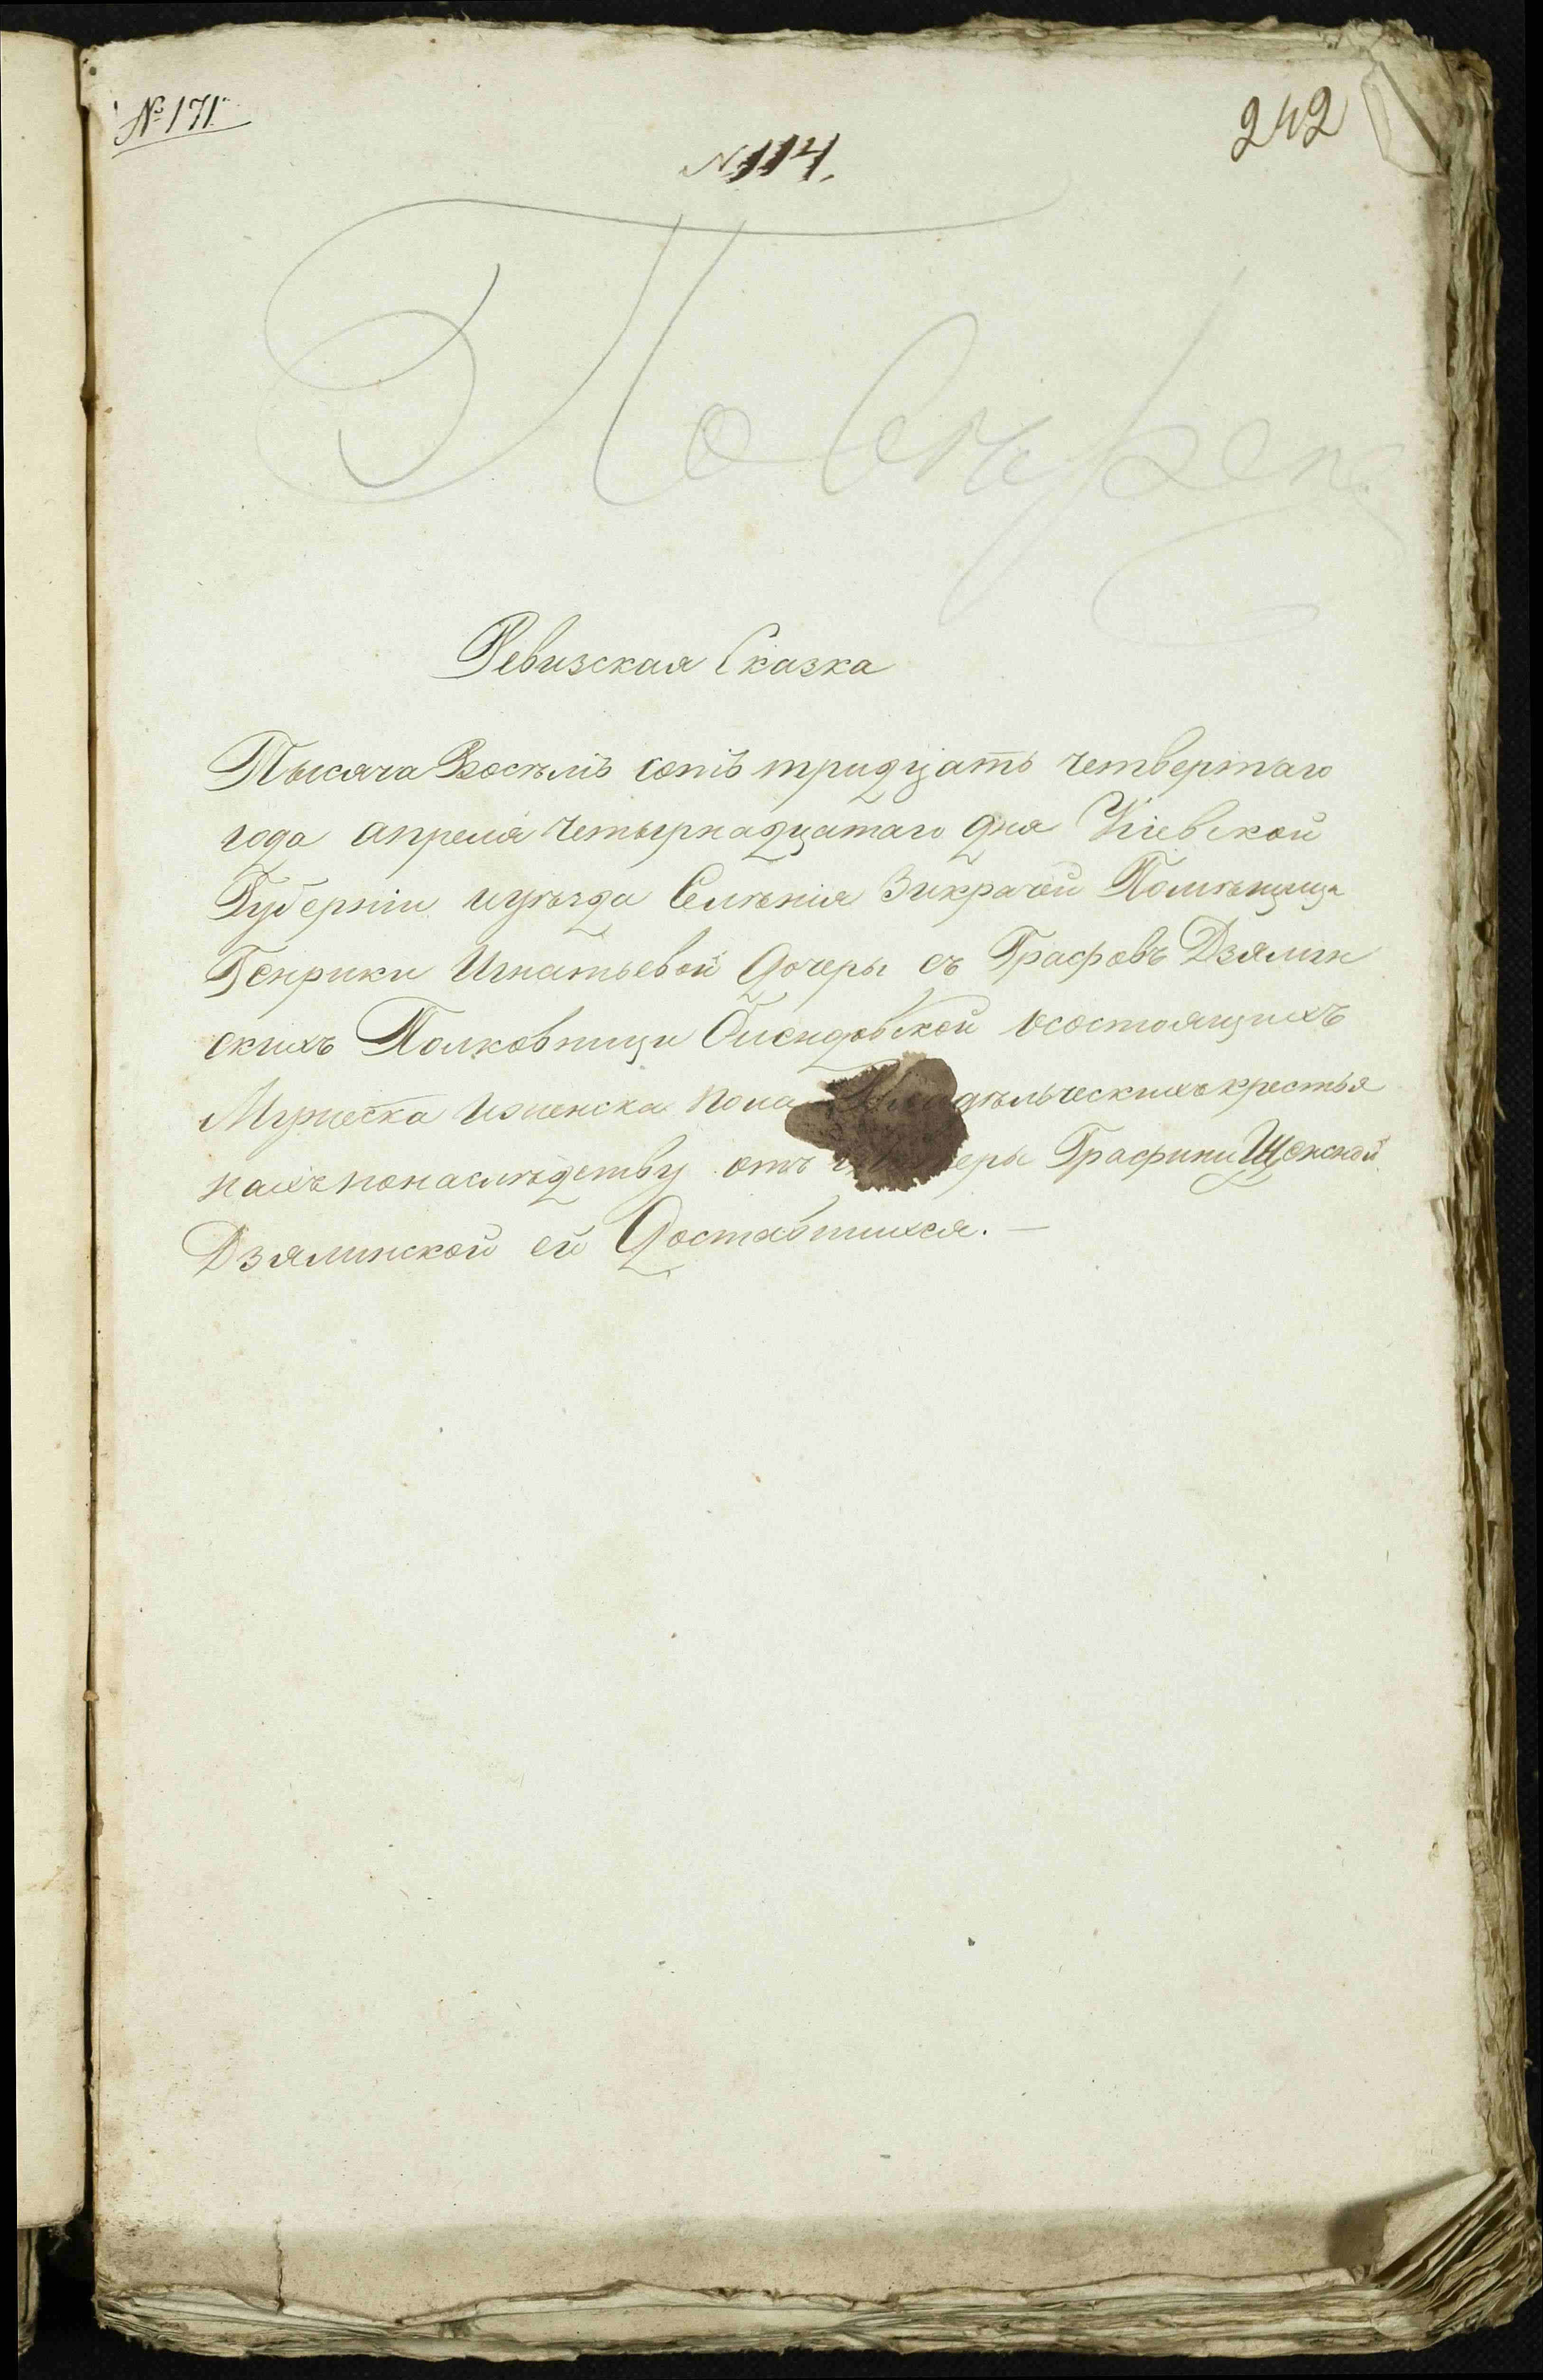 № 171
№ 114.
242
Повѣрена
Ревизская Сказка
Тысяча Восѣмъ сотъ тридцать четвертаго
года апреля четырнадцатаго дня Кіевской
Губерніи иуѣзда Селѣнія Зикрачей Помѣщицы
Генрики Игнатьевой дочеры съ Графовъ Дзялин
скихъ Полковницы осостоящихъ
Мужеска иженска пола крестья
нахъ понаслѣдству отъ Графини
Дзялинской ей Доставшихся. —